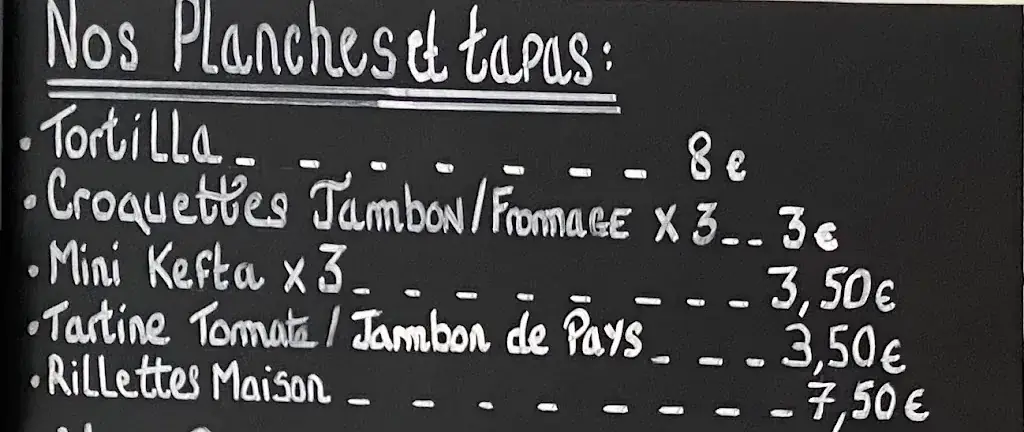 Nos Planches et tapas :
• Tortilla _ _ _ _ _ _ _ _ 8 €
• Croquettes Jambon / Fromage x 3 _ _ 3 €
• Mini Kefta x 3 _ _ _ _ _ _ _ _ 3,50 €
• Tartine Tomate / Jambon de Pays _ _ _ _ 3,50 €
• Rillettes Maison _ _ _ _ _ _ _ _ _ 7,50 €